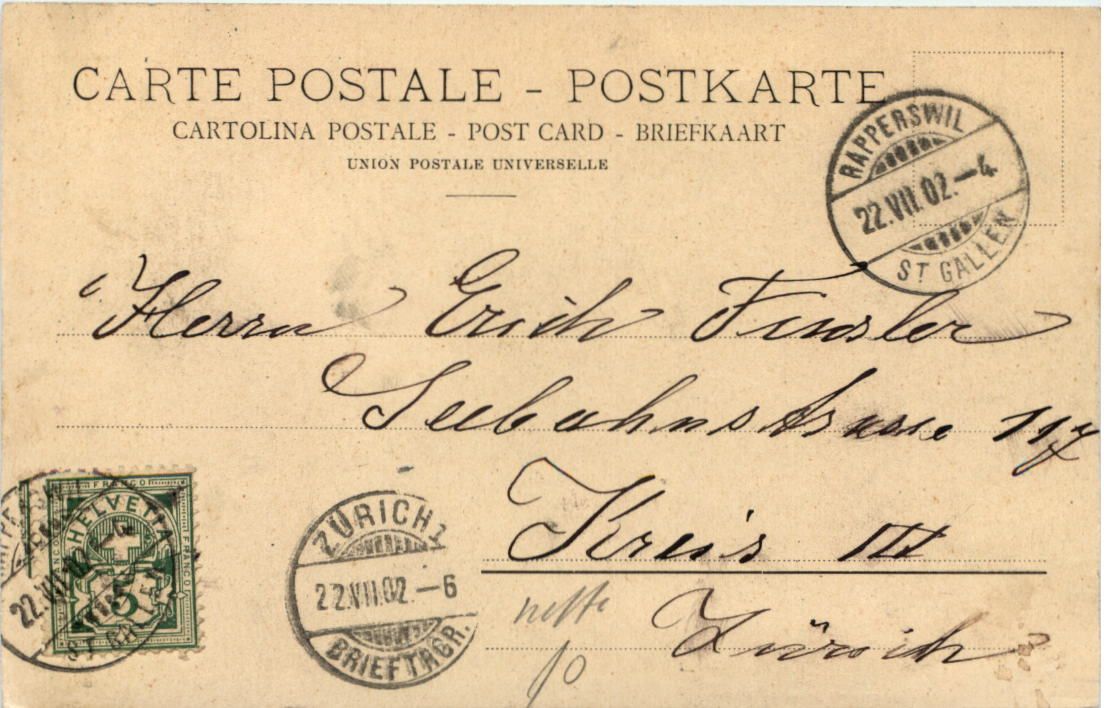 CARTE POSTALE - POSTKARTE
CARTOLINA POSTALE - POST CARD - BRIEFKAART
UNION POSTALE UNIVERSELLE
RAPPERSWIL
22.VII.02.-4
ST GALLEN
Herrn Erich Finsler
Seebahnstrasse 117
Kreis III
Zürich
FRANCO
HELVETIA
FRANCO
5
22.VII.02.-4
ZÜRICH 1
22.VII.02.-6
BRIEFTRGR.